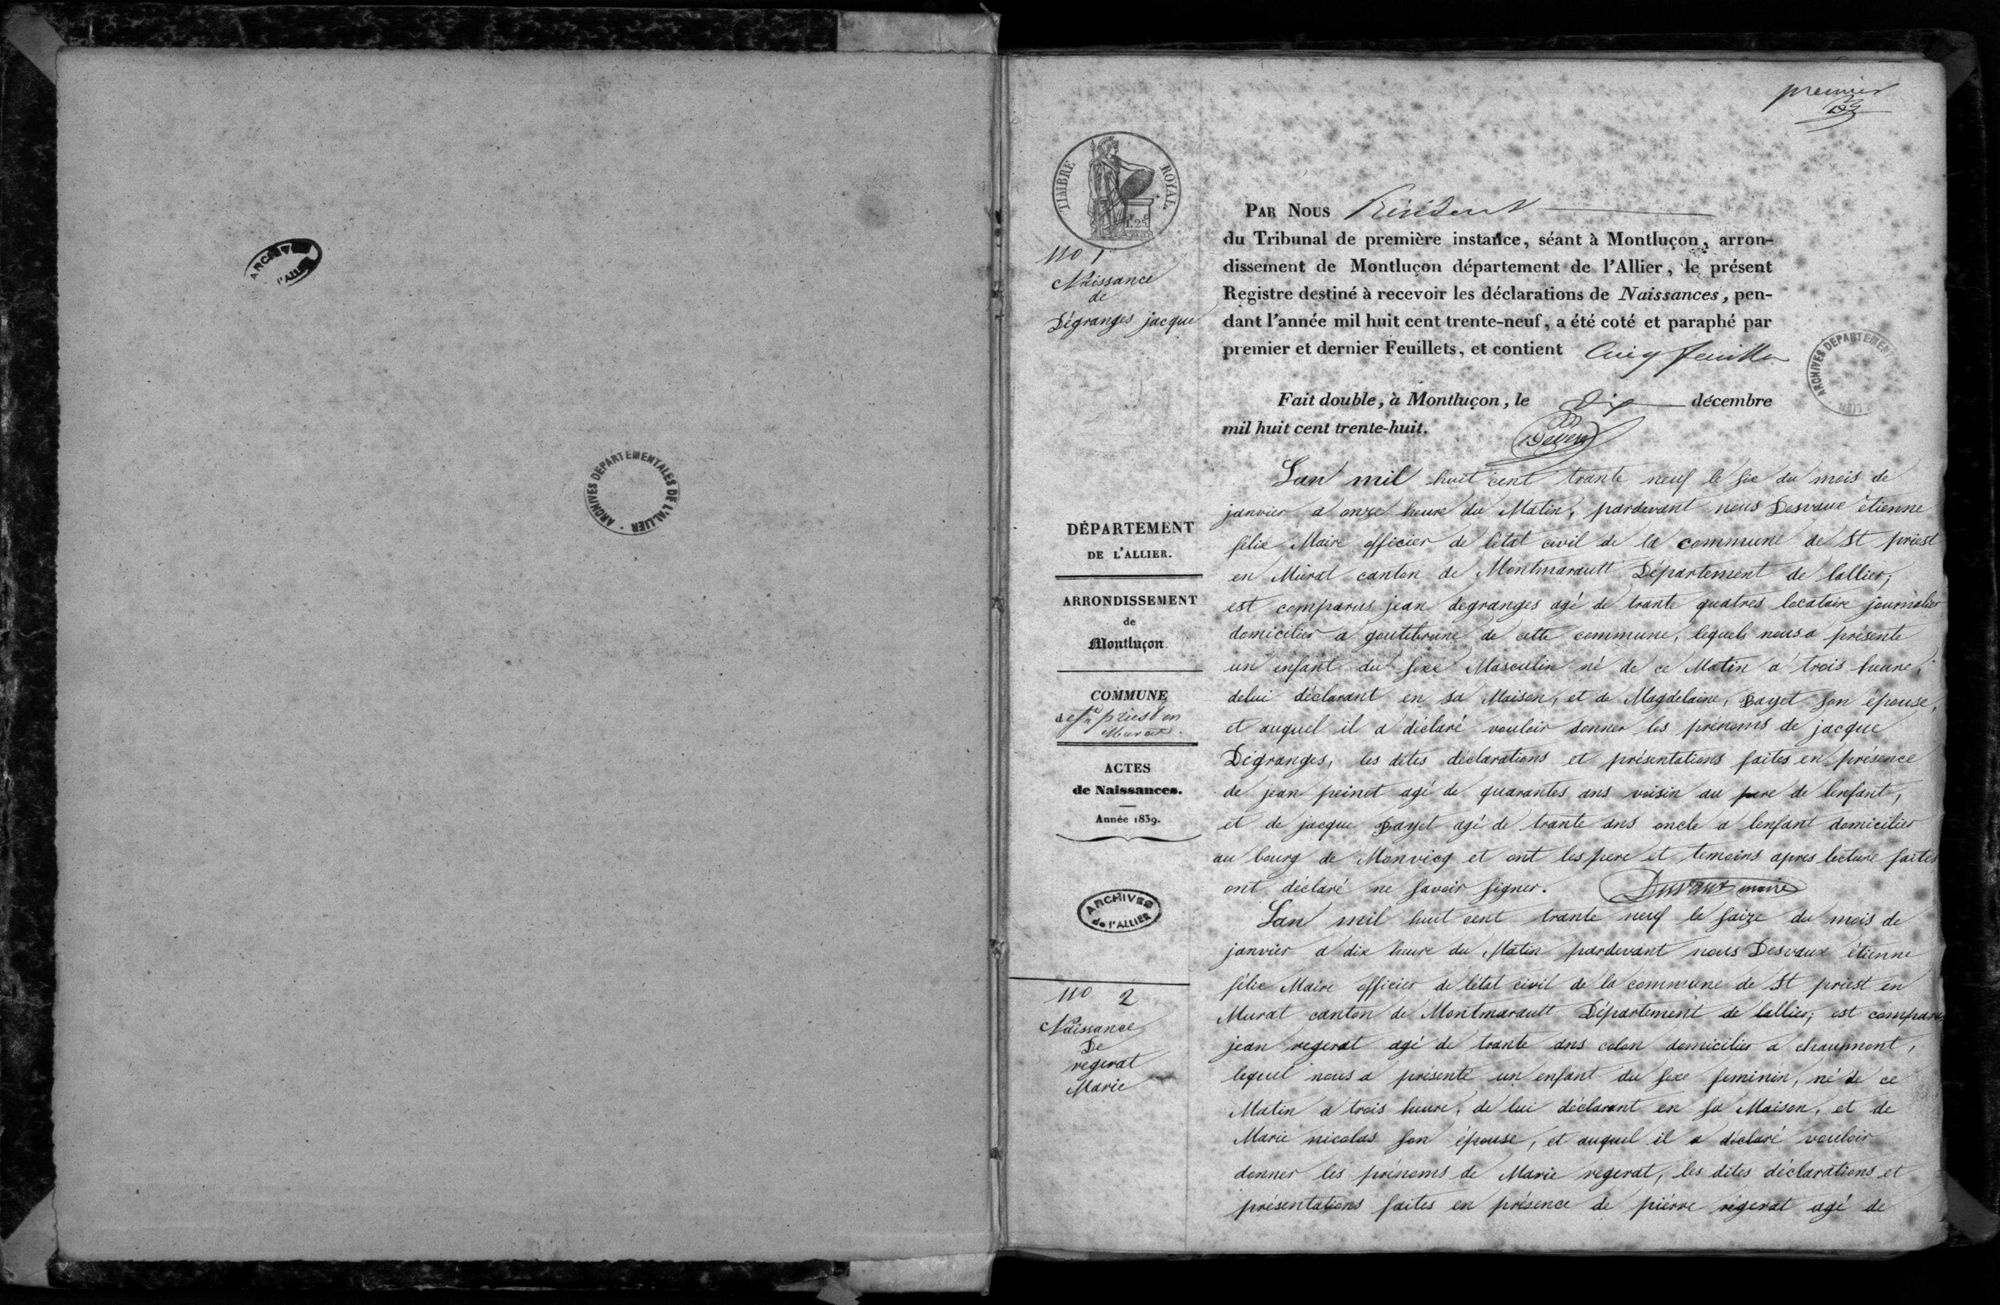 ARCHIVES
l'ALLIER
ARCHIVES DÉPARTEMENTALES DE L'ALLIER
premier
TIMBRE ROYAL
1.25
PAR NOUS Président
du Tribunal de première instance, séant à Montluçon, arron-
dissement de Montluçon département de l'Allier, le présent
Registre destiné à recevoir les déclarations de Naissances, pen-
dant l'année mil huit cent trente-neuf, a été coté et paraphé par
premier et dernier Feuillets, et contient Cinq feuilles
Fait double, à Montluçon, le dix décembre
mil huit cent trente-huit.
ARCHIVES DÉPARTEMENT
No 1
Naissance
de
Dégranges jacque
DÉPARTEMENT
DE L'ALLIER.
ARRONDISSEMENT
de
Montluçon
COMMUNE
de St priest en
Murat
ACTES
de Naissances.
Année 1839.
ARCHIVES
de l'ALLIER
Lan mil huit cent trante neuf le six du mois de
janvier a onze heure du Matin, pardevant nous Desvaux étienne
félix Maire officier de létat civil de la commune de St priest
en Murat canton de Montmarautt Département de lallier;
est comparus jean degranges agé de trante quatres locataire journalier
domicilier a goutebrune de cette commune, lequels nousa présente
un enfant du sexe Masculin né de ce Matin a trois heure,
delui déclarant en sa Maison, et de Magdelaine, Bayet son épouse,
et auquel il a déclaré vouloir donner les prénoms de jacque
Dégranges, les dites déclarations et présentations faites en présence
de jean peinot agé de quarantes ans voisin au pere de lenfant,
et de jacque Bayet agé de trante ans oncle a lenfant domicilier
au bourg de Monvicq et ont les pere et temoins apres lecture faites
ont déclaré ne savoir signer. Desvaux maire
No 2
Naissance
De
regerat
Marie
Lan mil huit cent trante neuf le saize du mois de
janvier a dix heure du Matin pardevant nous Desvaux étienne
félix Maire officier de létat civil de la commune de St priest en
Murat canton de Montmarautt Département de lallier; est comparus
jean regerat agé de trante ans colon domicilier a chaumont,
lequel nous a présenté un enfant du sexe feminin, né de ce
Matin a trois heure, de lui déclarant en sa Maison, et de
Marie nicolas son épouse, et auquel il a déclaré vouloir
donner les prénoms de Marie regerat, les dites déclarations et
présentations faites en présence de piérre régerat agé de